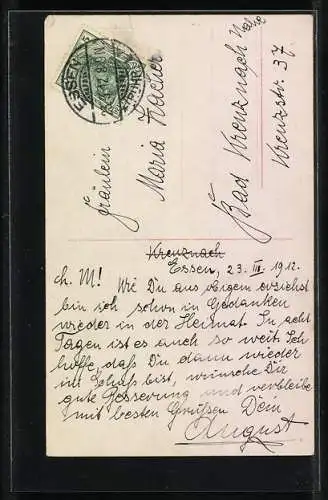 ESSEN
(RUHR)
Fräulein
Maria
Bad Kreuznach Nahe
Kreuzstr. 37
Kreuznach
Essen, 23. III. 1912.
l. M! Wie Du aus obigem ersiehst
bin ich schon in Gedanken
wieder in der Heimat. In acht
Tagen ist es auch so weit. Ich
hoffe, daß Du dann wieder
im bist, wünsche Dir
gute Besserung und verbleibe
mit besten Grüßen Dein
August